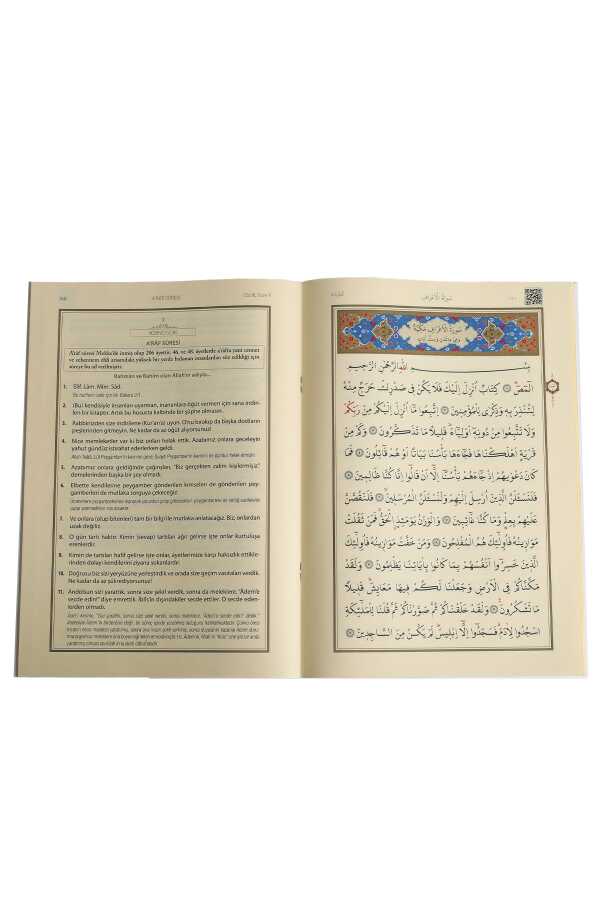 A'RÂF SÛRESİ
7
A'RÂF SÛRESİ
A'râf sûresi Mekke'de inmiş olup 206 âyettir. 46. ve 48. âyetlerde a'râfta yani cennet
ve cehennem ehli arasındaki yüksek bir yerde bulunan insanlardan söz edildiği için
sûreye bu ad verilmiştir.
Rahmân ve Rahîm olan Allah'ın adıyla...
1. Elif. Lâm. Mîm. Sâd.
2. (Bu) kendisiyle insanları uyarman, inananlara öğüt vermen için sana indiri-
len bir kitaptır. Artık bu hususta kalbinde bir şüphe olmasın.
3. Rabbinizden size indirilene (Kur'an'a) uyun. O'nu bırakıp da başka dostların
peşlerinden gitmeyin. Ne kadar da az öğüt alıyorsunuz!
4. Nice memleketler var ki biz onları helâk ettik. Azabımız onlara geceleyin
yahut gündüz istirahat ederlerken geldi.
5. Azabımız onlara geldiğinde çağrışları, "Biz gerçekten zalim kişilermişiz,"
demelerinden başka bir şey olmadı.
6. Elbette kendilerine peygamber gönderilen kimseleri de gönderilen pey-
gamberleri de mutlaka sorguya çekeceğiz!
7. Ve onlara (olup bitenleri) tam bir bilgi ile mutlaka anlatacağız. Biz, onlardan
uzak değiliz.
8. O gün tartı haktır. Kimin (sevap) tartıları ağır gelirse işte onlar kurtuluşa
erenlerdir.
9. Kimin de tartıları hafif gelirse işte onlar, âyetlerimize karşı haksızlık ettikle-
rinden dolayı kendilerini ziyana sokanlardır.
10. Doğrusu biz sizi yeryüzüne yerleştirdik ve orada size geçim vasıtaları verdik.
Ne kadar da az şükrediyorsunuz!
11. Andolsun sizi yarattık, sonra size şekil verdik, sonra da meleklere, "Âdem'e
secde edin!" diye emrettik. İblis'in dışındakiler secde ettiler. O secde eden-
lerden olmadı.
سُورَةُ الْأَعْرَافِ
سُورَةُ الْأَعْرَافِ مَكِّيَّةٌ
بِسْمِ اللّٰهِ الرَّحْمٰنِ الرَّحِيمِ
الٓمٓصٓ ۞ كِتَابٌ اُنْزِلَ اِلَيْكَ فَلَا يَكُنْ فٖي صَدْرِكَ حَرَجٌ مِنْهُ
لِتُنْذِرَ بِهٖ وَذِكْرٰى لِلْمُؤْمِنٖينَ ۞ اِتَّبِعُوا مَٓا اُنْزِلَ اِلَيْكُمْ مِنْ رَبِّكُمْ
وَلَا تَتَّبِعُوا مِنْ دُونِهٖٓ اَوْلِيَٓاءَ قَلٖيلًا مَا تَذَكَّرُونَ ۞ وَكَمْ مِنْ
قَرْيَةٍ اَهْلَكْنَاهَا فَجَٓاءَهَا بَأْسُنَا بَيَاتًا اَوْ هُمْ قَٓائِلُونَ ۞ فَمَا
كَانَ دَعْوٰيهُمْ اِذْ جَٓاءَهُمْ بَأْسُنَٓا اِلَّٓا اَنْ قَالُٓوا اِنَّا كُنَّا ظَالِمٖينَ ۞
فَلَنَسْـَٔلَنَّ الَّذٖينَ اُرْسِلَ اِلَيْهِمْ وَلَنَسْـَٔلَنَّ الْمُرْسَلٖينَ ۞ فَلَنَقُصَّنَّ
عَلَيْهِمْ بِعِلْمٍ وَمَا كُنَّا غَٓائِبٖينَ ۞ وَالْوَزْنُ يَوْمَئِذٍ الْحَقُّ فَمَنْ ثَقُلَتْ
مَوَازٖينُهُ فَاُولٰٓئِكَ هُمُ الْمُفْلِحُونَ ۞ وَمَنْ خَفَّتْ مَوَازٖينُهُ فَاُولٰٓئِكَ
الَّذٖينَ خَسِرُٓوا اَنْفُسَهُمْ بِمَا كَانُوا بِاٰيَاتِنَا يَظْلِمُونَ ۞ وَلَقَدْ
مَكَّنَّاكُمْ فِي الْاَرْضِ وَجَعَلْنَا لَكُمْ فٖيهَا مَعَايِشَ قَلٖيلًا
مَا تَشْكُرُونَ ۞ وَلَقَدْ خَلَقْنَاكُمْ ثُمَّ صَوَّرْنَاكُمْ ثُمَّ قُلْنَا لِلْمَلٰٓئِكَةِ
اسْجُدُوا لِاٰدَمَ فَسَجَدُٓوا اِلَّٓا اِبْلٖيسَ لَمْ يَكُنْ مِنَ السَّاجِدٖينَ ۞